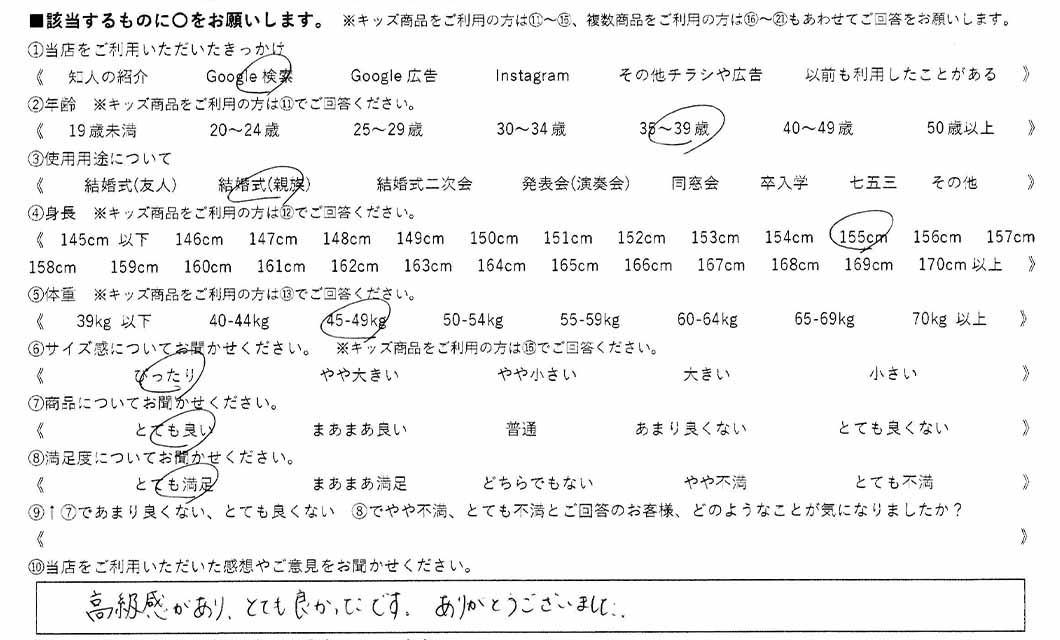 ■該当するものに〇をお願いします。 ※キッズ商品をご利用の方は⑪～⑮、複数商品をご利用の方は⑯～㉑もあわせてご回答をお願いします。
①当店をご利用いただいたきっかけ
《 知人の紹介 Google 検索 Google 広告 Instagram その他チラシや広告 以前も利用したことがある 》
②年齢 ※キッズ商品をご利用の方は⑪でご回答ください。
《 19歳未満 20～24歳 25～29歳 30～34歳 35～39歳 40～49歳 50歳以上 》
③使用用途について
《 結婚式(友人) 結婚式(親族) 結婚式二次会 発表会(演奏会) 同窓会 卒入学 七五三 その他 》
④身長 ※キッズ商品をご利用の方は⑫でご回答ください。
《 145cm 以下 146cm 147cm 148cm 149cm 150cm 151cm 152cm 153cm 154cm 155cm 156cm 157cm
158cm 159cm 160cm 161cm 162cm 163cm 164cm 165cm 166cm 167cm 168cm 169cm 170cm以上 》
⑤体重 ※キッズ商品をご利用の方は⑬でご回答ください。
《 39kg 以下 40-44kg 45-49kg 50-54kg 55-59kg 60-64kg 65-69kg 70kg 以上 》
⑥サイズ感についてお聞かせください。 ※キッズ商品をご利用の方は⑮でご回答ください。
《 ぴったり やや大きい やや小さい 大きい 小さい 》
⑦商品についてお聞かせください。
《 とても良い まあまあ良い 普通 あまり良くない とても良くない 》
⑧満足度についてお聞かせください。
《 とても満足 まあまあ満足 どちらでもない やや不満 とても不満 》
⑨↑⑦であまり良くない、とても良くない ⑧でやや不満、とても不満とご回答のお客様、どのようなことが気になりましたか？
《 》
⑩当店をご利用いただいた感想やご意見をお聞かせください。
高級感があり、とても良かったです。ありがとうございました。